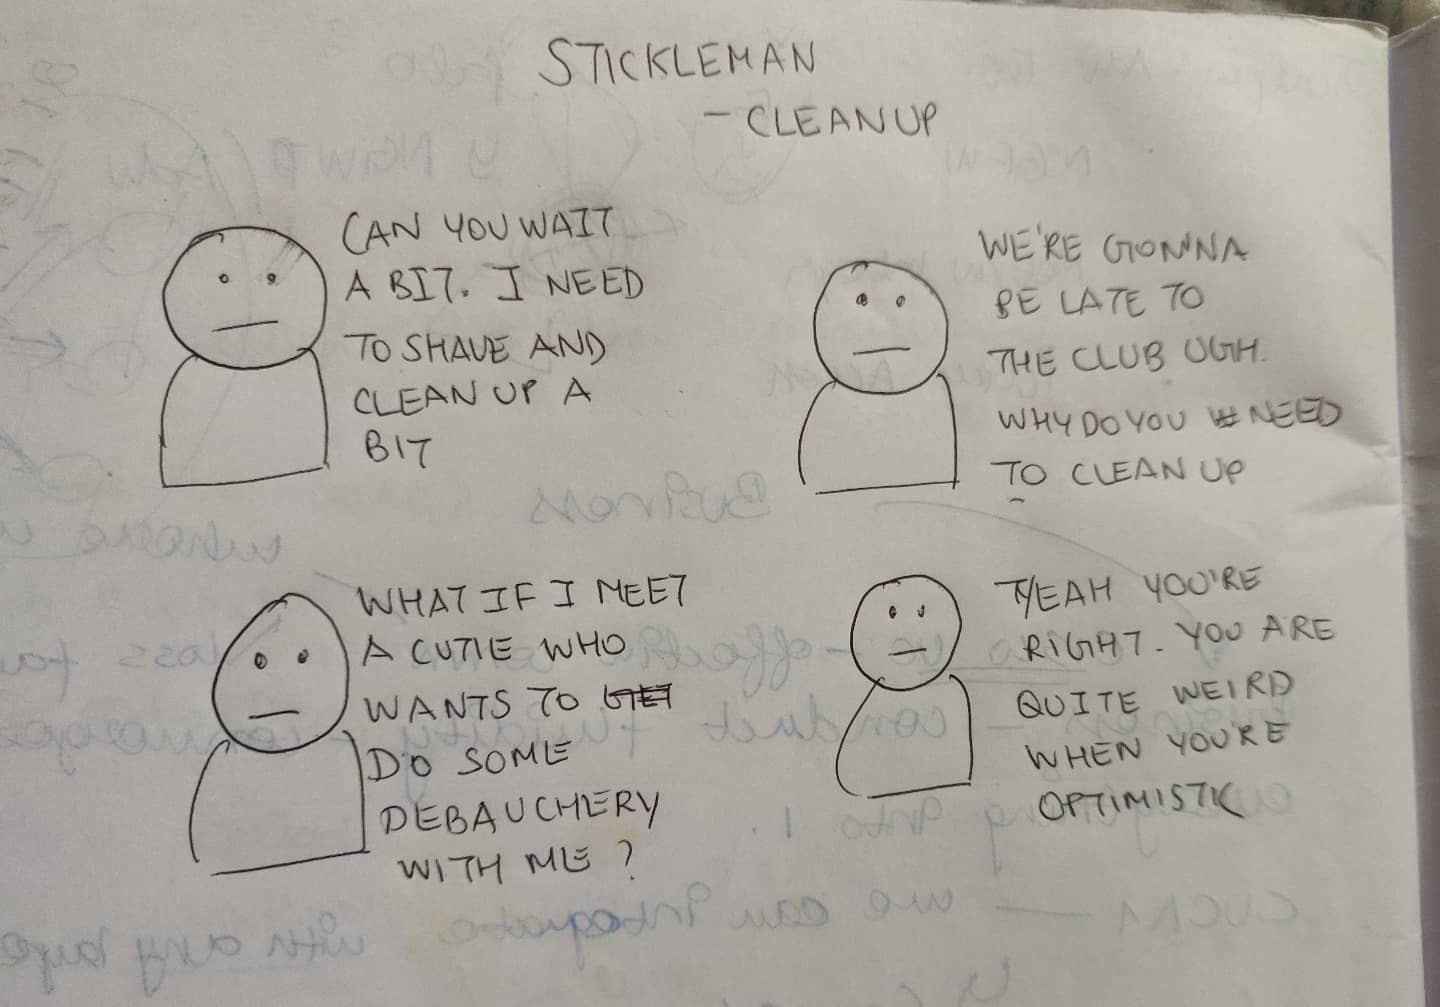 STICKLEMAN
- CLEANUP
CAN YOU WAIT
A BIT. I NEED
TO SHAVE AND
CLEAN UP A
BIT
WE'RE GONNA
BE LATE TO
THE CLUB UGH.
WHY DO YOU NEED
TO CLEAN UP
WHAT IF I MEET
A CUTIE WHO
WANTS TO GET
DO SOME
DEBAUCHERY
WITH ME ?
YEAH YOU'RE
RIGHT. YOU ARE
QUITE WEIRD
WHEN YOU'RE
OPTIMISTIC